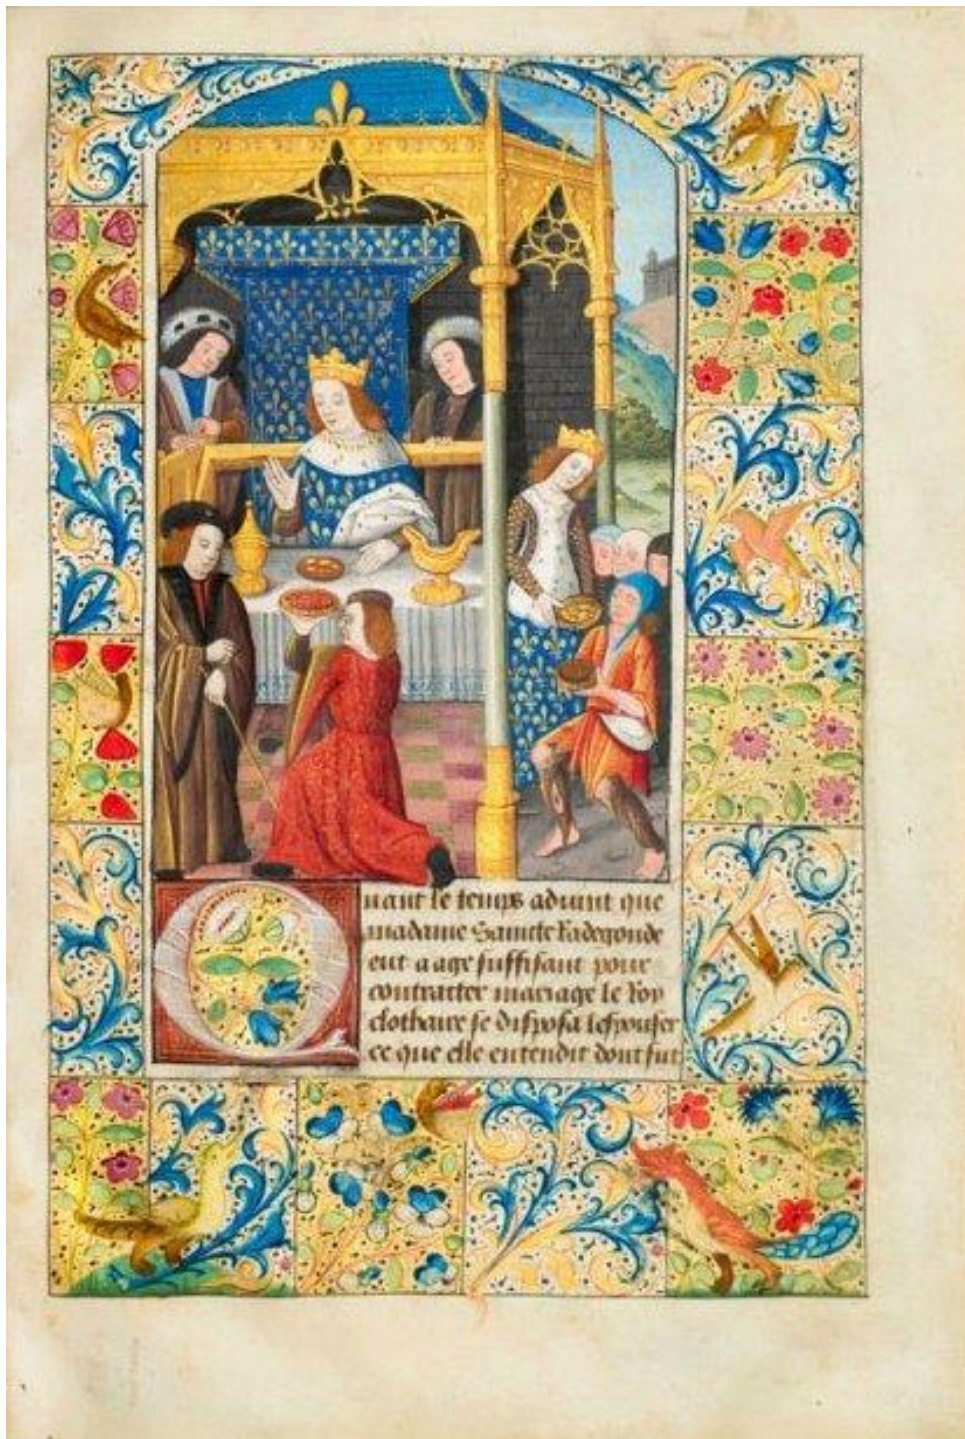 Quant le temps advint que
madame Saincte Radegonde
eut aage suffisant pour
contracter mariage le Roy
clothaire se disposa lespouser
ce que elle entendit dont fut